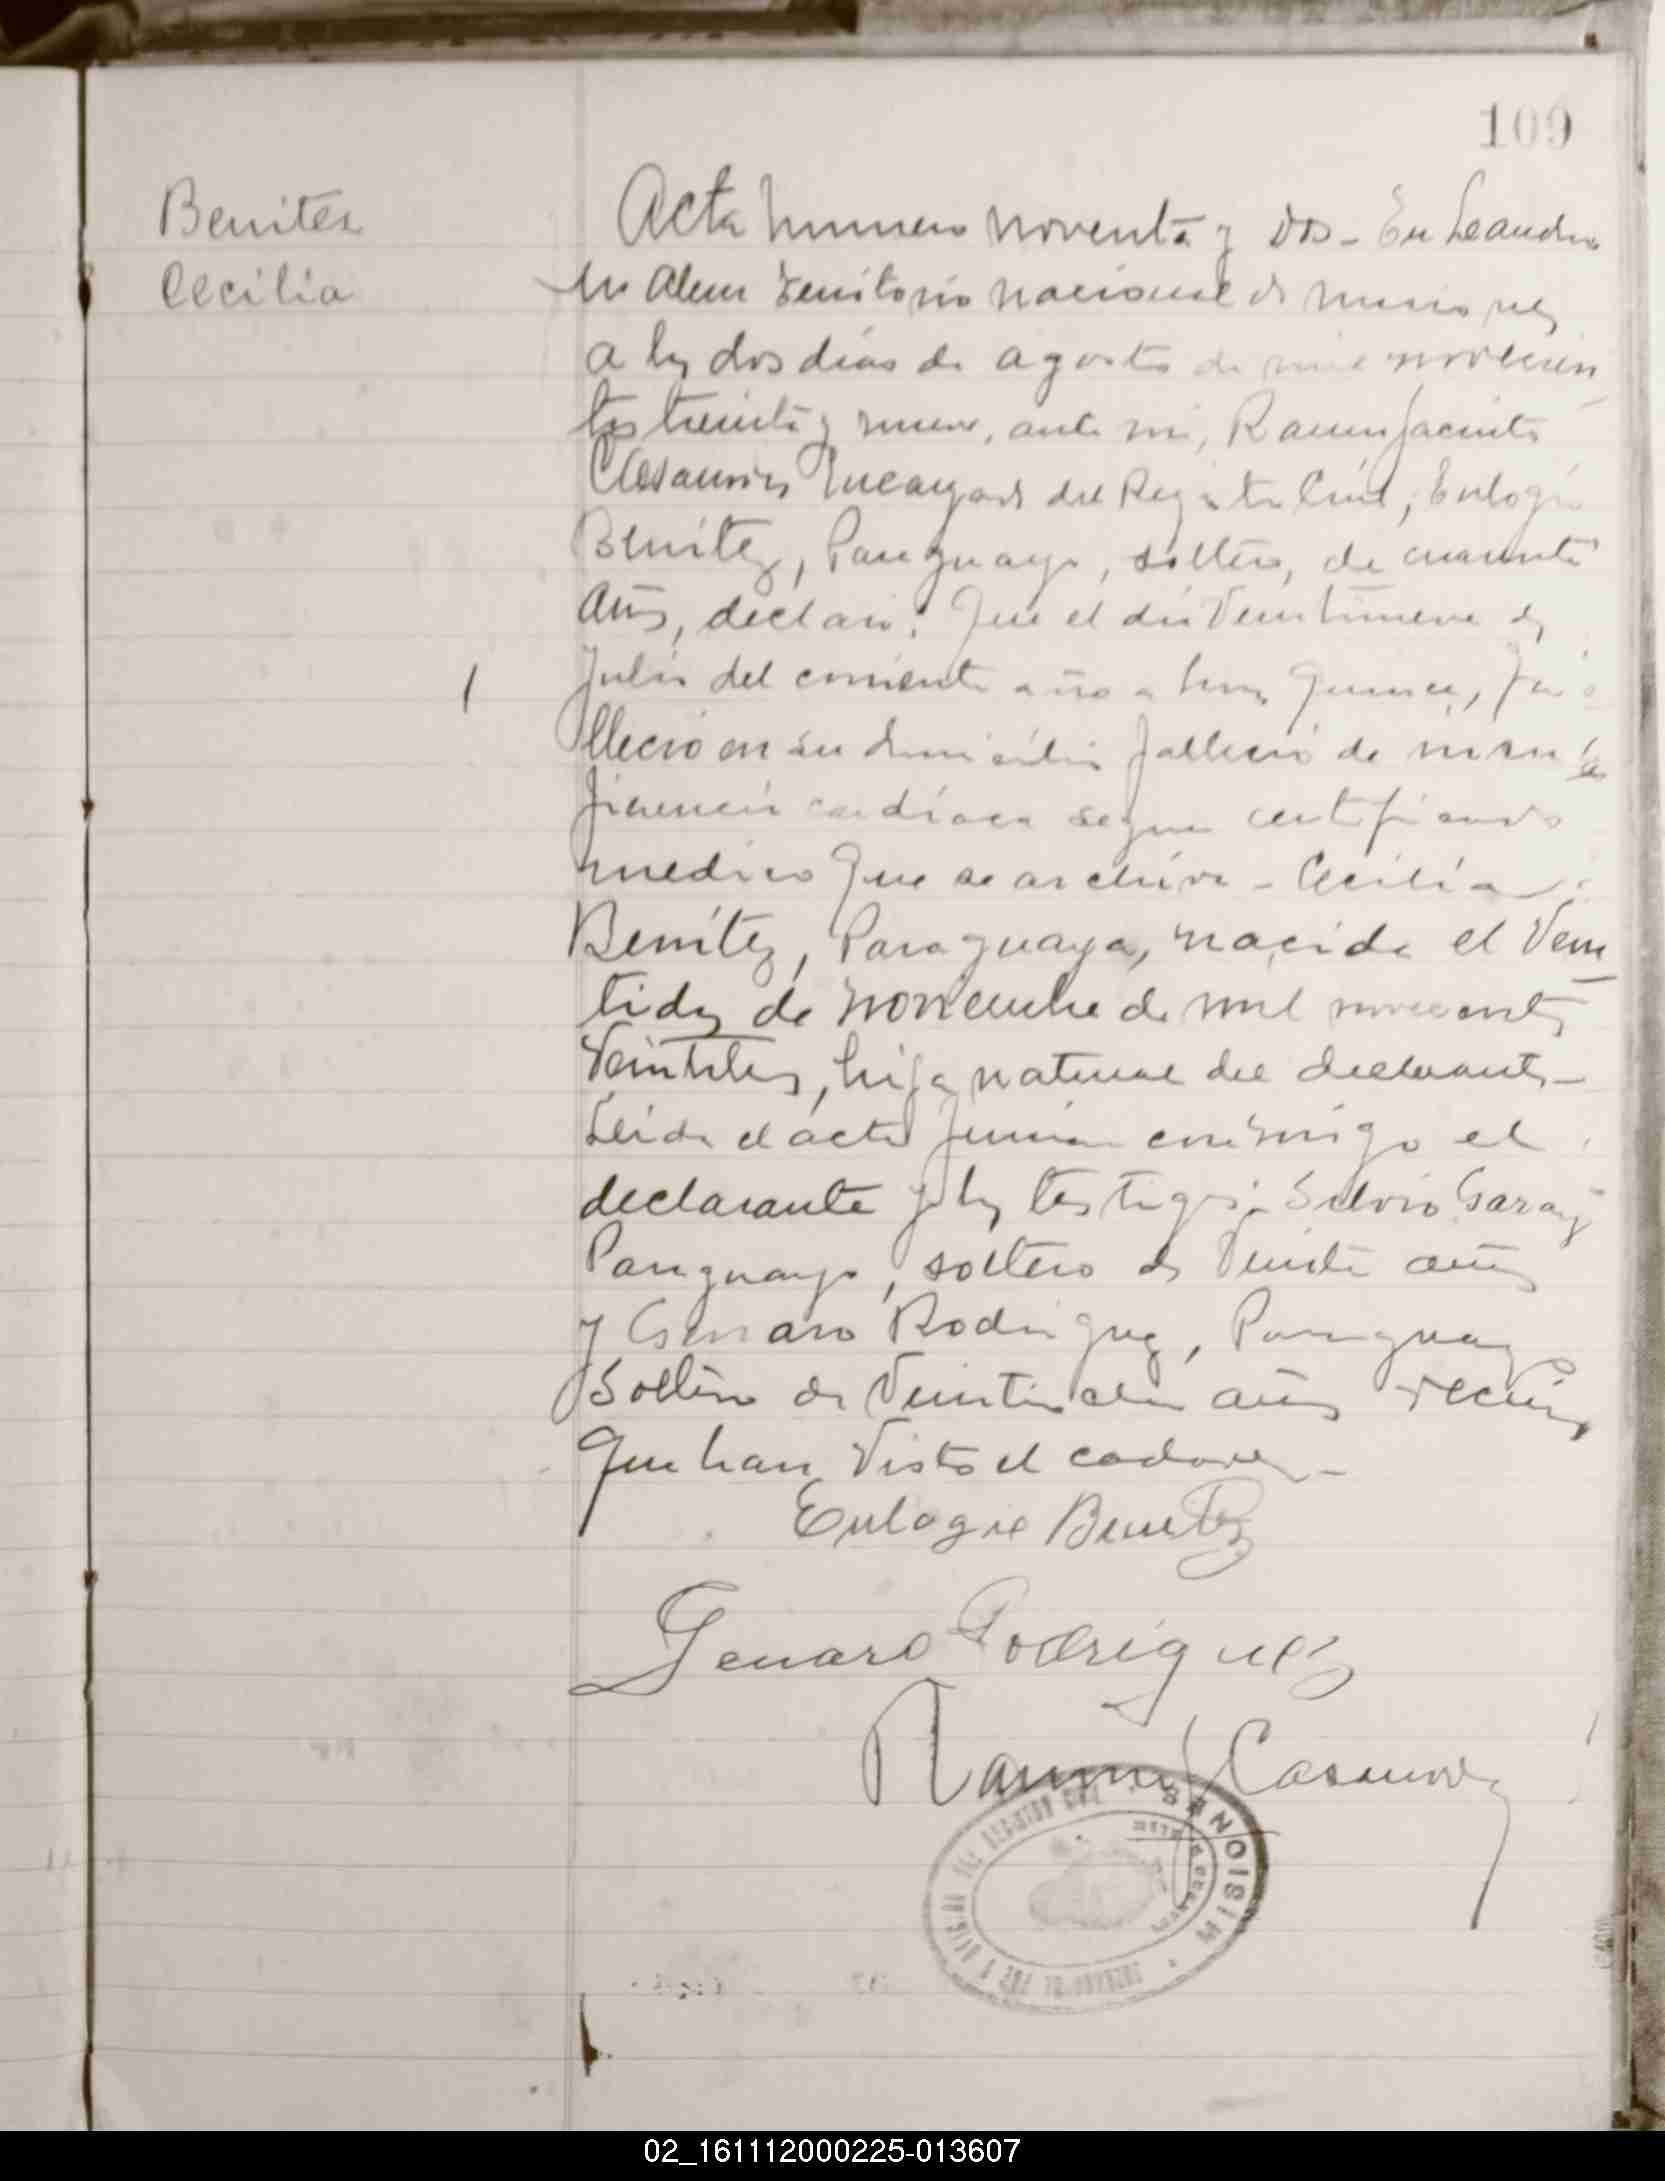 109
Benitez
Cecilia
Acta numero noventa y dos - En Leandro
N Alem Territorio nacional de Misiones
a los dos dias de agosto de mil novecien
tos treinta y nueve, ante mi, Ramon Jacinto
Casanova Encargado del Registro Civil, Eulogio
Benitez, Paraguayo, soltero, de cuarenta
años, declaro: Que el dia veintinueve de
Julio del corriente año a horas quince, fa
llecio en su domicilio fallecio de insu
ficiencia cardiaca segun certificado
medico que se archiva - Cecilia
Benítez, Paraguaya, nacida el Vein
tidos de noviembre de mil novecientos
Veintitres, hija natural del declarante -
Leida el acta firman conmigo el
declarante y los testigos: Silvio Garay
Paraguayo, soltero de Veinte años
y Genaro Rodriguez, Paraguayo
Soltero de años
que han Visto el cadaver -
Eulogio Benitez
Genaro Rodriguez
Ramon J Casanova
MISIONES
REGISTRO CIVIL
JUZGADO DE PAZ Y
02_161112000225-013607